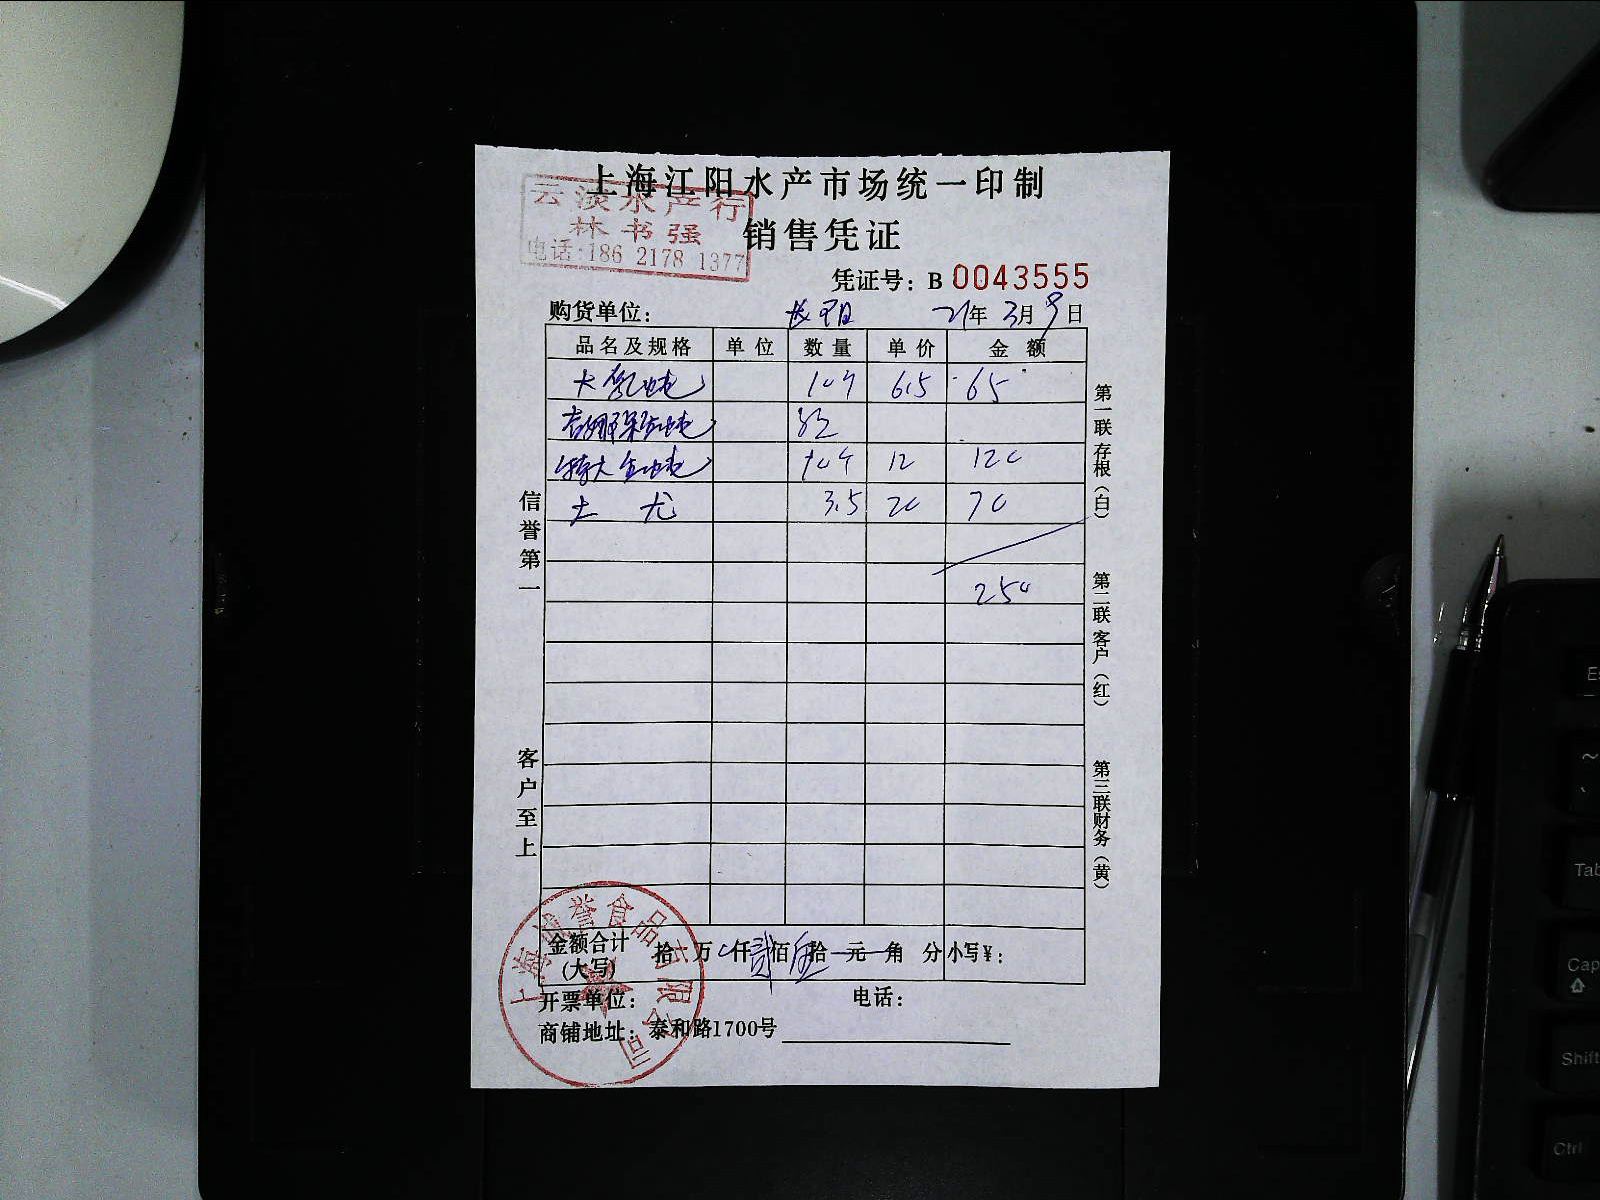 上海江阳水产市场统一印制
云淡水产行
林书强
电话:186 2178 1377
销售凭证
凭证号: B 0043555
购货单位: 21年 3月 9日
品名及规格 单位 数量 单价 金额
大 6.5 65
特大 12 120
土 龙 3.5 20 70
250
信誉第一
客户至上
第一联 存根(白)
第二联 客户(红)
第三联 财务(黄)
金额合计(大写) 拾 万 仟 贰 佰 伍 拾 元 角 分 小写¥:
开票单位: 电话:
商铺地址: 泰和路1700号
上海诚誉食品有限公司
Esc
~
Tab
Cap
Shift
Ctrl